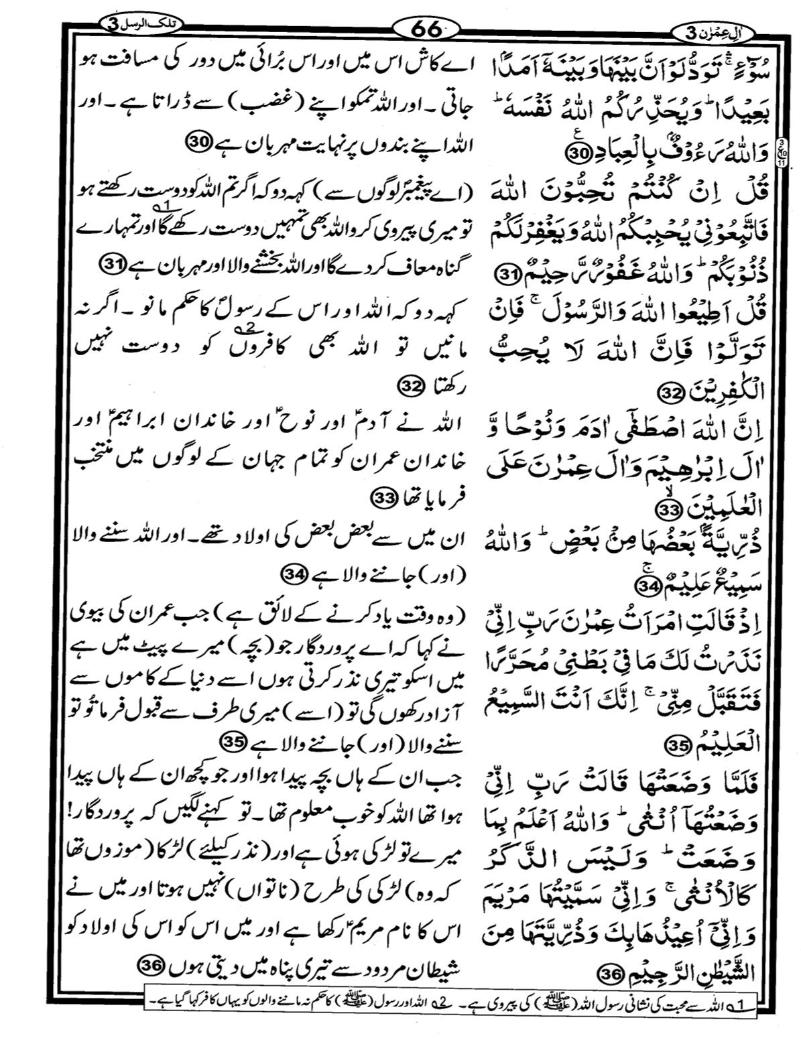 اٰلِ عِمْرٰن 3
66
تلک الرسل 3
سُوْٓءٍ ۛۚ تَوَدُّ لَوْ اَنَّ بَیْنَهَا وَبَیْنَهٗۤ اَمَدًۢا
بَعِیْدًا ؕ وَیُحَذِّرُكُمُ اللّٰهُ نَفْسَهٗ ؕ
وَاللّٰهُ رَءُوْفٌۢ بِالْعِبَادِ ﴿30﴾
قُلْ اِنْ كُنْتُمْ تُحِبُّوْنَ اللّٰهَ
فَاتَّبِعُوْنِیْ یُحْبِبْكُمُ اللّٰهُ وَیَغْفِرْ لَكُمْ
ذُنُوْبَكُمْ ؕ وَاللّٰهُ غَفُوْرٌ رَّحِیْمٌ ﴿31﴾
قُلْ اَطِیْعُوا اللّٰهَ وَالرَّسُوْلَ ۚ فَاِنْ
تَوَلَّوْا فَاِنَّ اللّٰهَ لَا یُحِبُّ
الْكٰفِرِیْنَ ﴿32﴾
اِنَّ اللّٰهَ اصْطَفٰۤی اٰدَمَ وَنُوْحًا وَّ
اٰلَ اِبْرٰهِیْمَ وَاٰلَ عِمْرٰنَ عَلَی
الْعٰلَمِیْنَ ۙ﴿33﴾
ذُرِّیَّةًۢ بَعْضُهَا مِنْۢ بَعْضٍ ؕ وَاللّٰهُ
سَمِیْعٌ عَلِیْمٌ ۚ﴿34﴾
اِذْ قَالَتِ امْرَاَتُ عِمْرٰنَ رَبِّ اِنِّیْ
نَذَرْتُ لَكَ مَا فِیْ بَطْنِیْ مُحَرَّرًا
فَتَقَبَّلْ مِنِّیْ ۚ اِنَّكَ اَنْتَ السَّمِیْعُ
الْعَلِیْمُ ﴿35﴾
فَلَمَّا وَضَعَتْهَا قَالَتْ رَبِّ اِنِّیْ
وَضَعْتُهَاۤ اُنْثٰی ؕ وَاللّٰهُ اَعْلَمُ بِمَا
وَضَعَتْ ؕ وَلَیْسَ الذَّكَرُ
كَالْاُنْثٰی ۚ وَاِنِّیْ سَمَّیْتُهَا مَرْیَمَ
وَاِنِّیْۤ اُعِیْذُهَا بِكَ وَذُرِّیَّتَهَا مِنَ
الشَّیْطٰنِ الرَّجِیْمِ ﴿36﴾
اے کاش اس میں اور اس بُرائی میں دور کی مسافت ہو
جاتی ۔ اور اللہ تمکو اپنے (غضب) سے ڈراتا ہے ۔ اور
اللہ اپنے بندوں پر نہایت مہربان ہے ﴿30﴾
(اے پیغمبرؐ لوگوں سے) کہہ دو کہ اگر تم اللہ کو دوست رکھتے ہو
تو میری پیروی کرو اللہ بھی تمہیں دوست رکھے گا 1؂ اور تمہارے
گناہ معاف کر دے گا اور اللہ بخشنے والا اور مہربان ہے ﴿31﴾
کہہ دو کہ اللہ اور اس کے رسولؐ کا حکم مانو ۔ اگر نہ
مانیں تو اللہ بھی کافروں 2؂ کو دوست نہیں
رکھتا ﴿32﴾
اللہ نے آدمؑ اور نوحؑ اور خاندان ابراہیمؑ اور
خاندان عمران کو تمام جہان کے لوگوں میں منتخب
فرمایا تھا ﴿33﴾
ان میں سے بعض بعض کی اولاد تھے ۔ اور اللہ سننے والا
(اور) جاننے والا ہے ﴿34﴾
(وہ وقت یاد کرنے کے لائق ہے) جب عمران کی بیوی
نے کہا کہ اے پروردگار جو (بچہ) میرے پیٹ میں ہے
میں اسکو تیری نذر کرتی ہوں اسے دنیا کے کاموں سے
آزاد رکھوں گی تو (اسے) میری طرف سے قبول فرما تُو تو
سننے والا (اور) جاننے والا ہے ﴿35﴾
جب ان کے ہاں بچہ پیدا ہوا اور جو کچھ ان کے ہاں پیدا
ہوا تھا اللہ کو خوب معلوم تھا ۔ تو کہنے لگیں کہ پروردگار!
میرے تو لڑکی ہوئی ہے اور (نذر کیلئے) لڑکا (موزوں تھا
کہ وہ) لڑکی کی طرح (ناتواں) نہیں ہوتا اور میں نے
اس کا نام مریمؑ رکھا ہے اور میں اس کو اس کی اولاد کو
شیطان مردود سے تیری پناہ میں دیتی ہوں ﴿36﴾
1؂ اللہ سے محبت کی نشانی رسول اللہ (ﷺ) کی پیروی ہے ۔ 2؂ اللہ اور رسول (ﷺ) کا حکم نہ ماننے والوں کو یہاں کافر کہا گیا ہے ۔